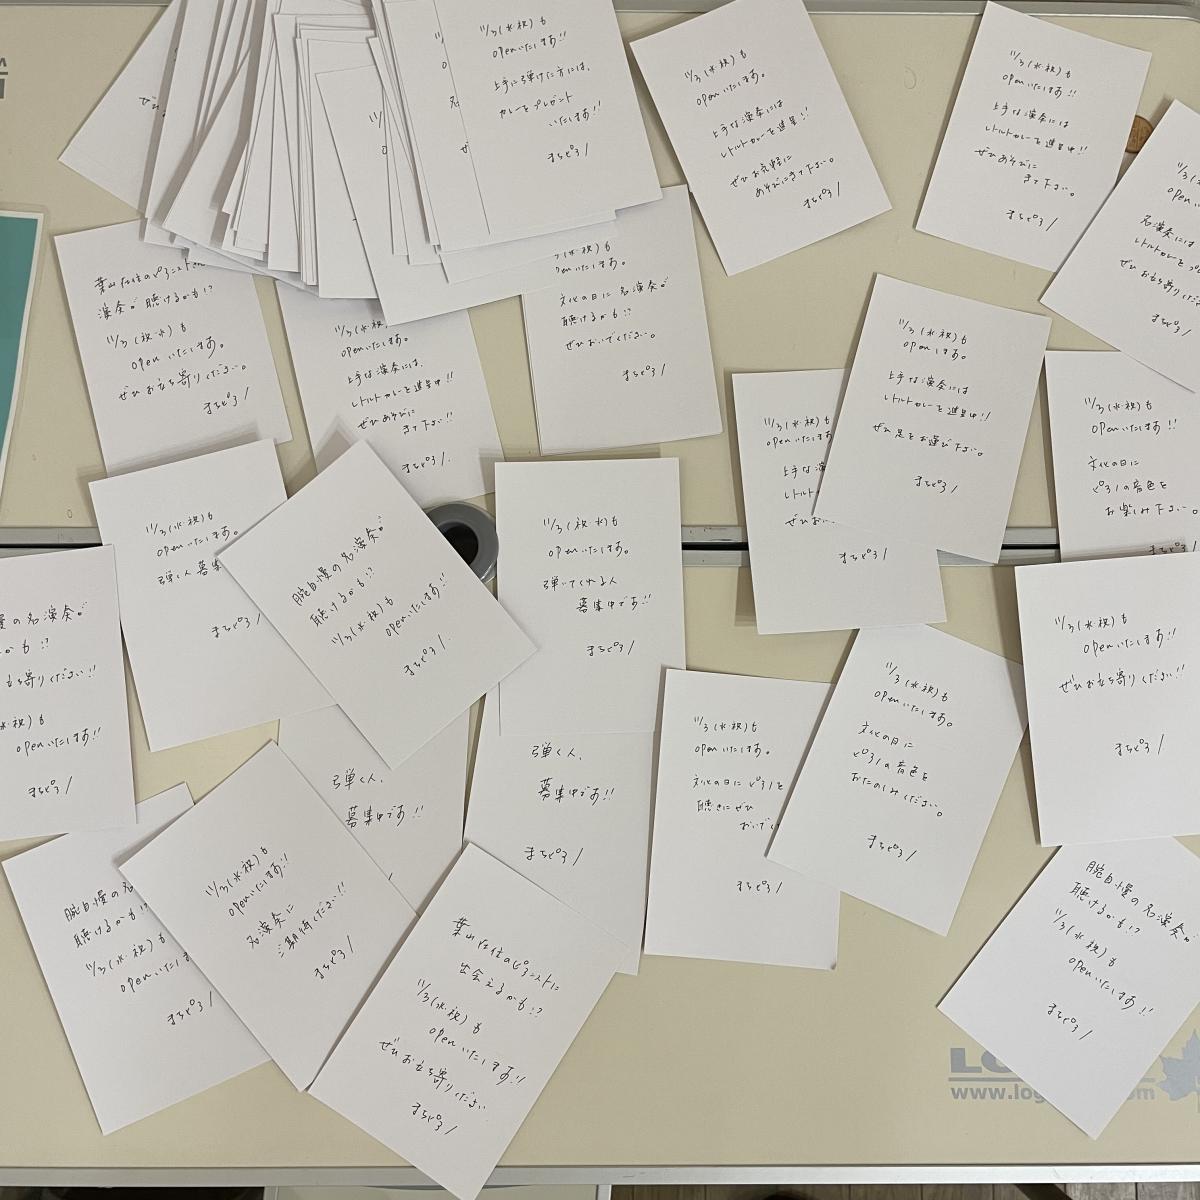 11/3(水・祝)も
openいたします!!
上手に弾けた方には、
カレーをプレゼント
いたします!!
まちピアノ
11/3(水・祝)も
openいたします。
上手な演奏には
レトルトカレーを進呈!!
ぜひお気軽に
あそびにきて下さい。
まちピアノ
11/3(水・祝)も
openいたします!!
上手な演奏には
レトルトカレーを進呈中!!
ぜひあそびに
きて下さい。
まちピアノ
名演奏には
まちピアノ
葉山在住のピアニストの
演奏が聴けるかも!?
11/3(祝・水)も
openいたします。
ぜひお立ち寄りください。
まちピアノ
11/3(水・祝)
openいたします。
上手な演奏には、
レトルトカレーを進呈中!!
ぜひあそびに
きて下さい!!
まちピアノ
文化の日に名演奏が
聴けるかも!?
ぜひおいでください。
まちピアノ
11/3(水・祝)も
openします。
上手な演奏には
レトルトカレーを進呈中!!
ぜひ足をお運び下さい。
まちピアノ
11/3(水・祝)も
openいたします
まちピアノ
11/3(水・祝)も
openいたします!!
文化の日に
ピアノの音色を
お楽しみ下さい。
まちピアノ
11/3(水・祝)も
openいたします。
弾く人募集
まちピアノ
腕自慢の名演奏が
聴けるかも!?
11/3(水・祝)も
openいたします!!
まちピアノ
11/3(祝・水)も
openいたします。
弾いてくれる人
募集中です!!
まちピアノ
慢の名演奏が
かも!?
立ち寄りください!!
水・祝)も
openいたします!!
まちピアノ
11/3(水・祝)も
openいたします!!
ぜひお立ち寄りください!!
まちピアノ
弾く人、
募集中です!!
弾く人、
募集中です!!
まちピアノ
11/3(水・祝)も
openいたします。
文化の日にピアノを
聴きにぜひ
おいでく
まちピアノ
11/3(水・祝)も
openいたします。
文化の日に
ピアノの音色を
おたのしみください。
まちピアノ
腕自慢の名
聴けるかも!?
11/3(水・祝)も
openいたしま
まちピアノ
11/3(水・祝)も
openいたします!!
名演奏に
ご期待ください!!
まちピアノ
葉山在住のピアニストに
出会えるかも!?
11/3(水・祝)も
openいたします!!
ぜひお立ち寄りください
まちピアノ
腕自慢の名演奏が
聴けるかも!?
11/3(水・祝)も
openいたします!!
まちピアノ